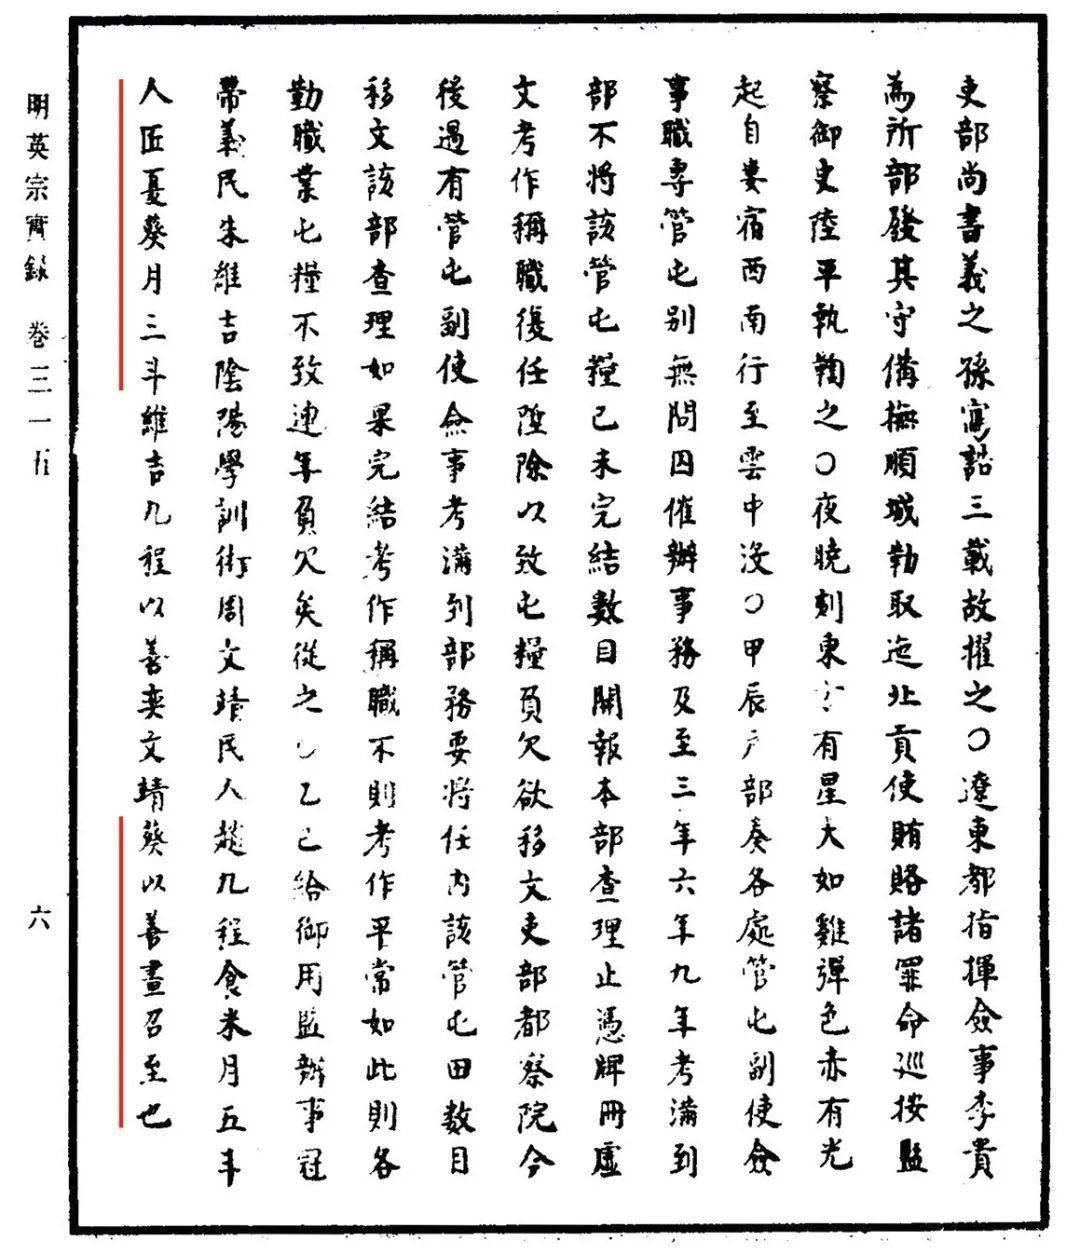 吏部尚書義之孫寓誥三載故擢之〇遼東都指揮僉事李貴
為所部發其守備撫順城勒取迤北貢使賄賂諸罪命巡按監
察御史陸平執鞫之〇夜曉刻東方有星大如雞彈色赤有光
起自婁宿西南行至雲中沒〇甲辰戶部奏各處管屯副使僉
事職專管屯別無問囚催辦事務及至三年六年九年考滿到
部不將該管屯糧已未完結數目開報本部查理止憑牌冊虛
文考作稱職復任陞除以致屯糧負欠欲移文吏部都察院今
後遇有管屯副使僉事考滿到部務要將任內該管屯田數目
移文該部查理如果完結考作稱職不則考作平常如此則各
勤職業屯糧不致連年負欠矣從之〇乙巳給御用監辦事冠
帶義民朱維吉陰陽學訓術周文靖民人趙九程食米月五斗
人匠夏葵月三斗維吉九程以善奕文靖葵以善畫召至也
明英宗實錄 卷三一五
六